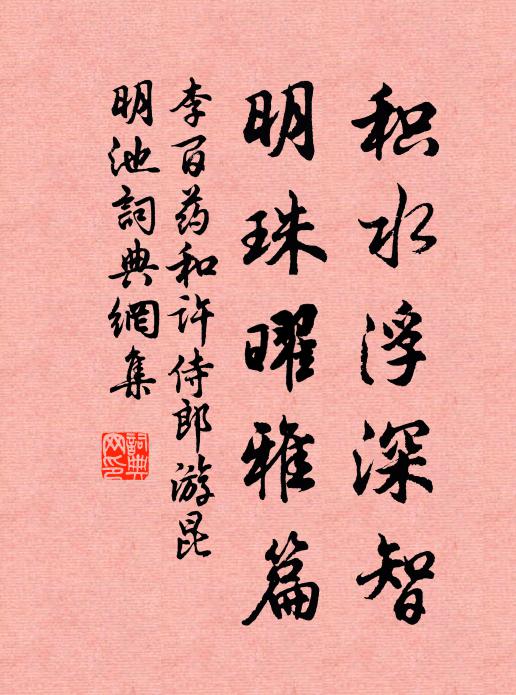 积水浮深智
明珠曜雅篇
李百药和许侍郎游昆
明池詞典網集
詞典
网印